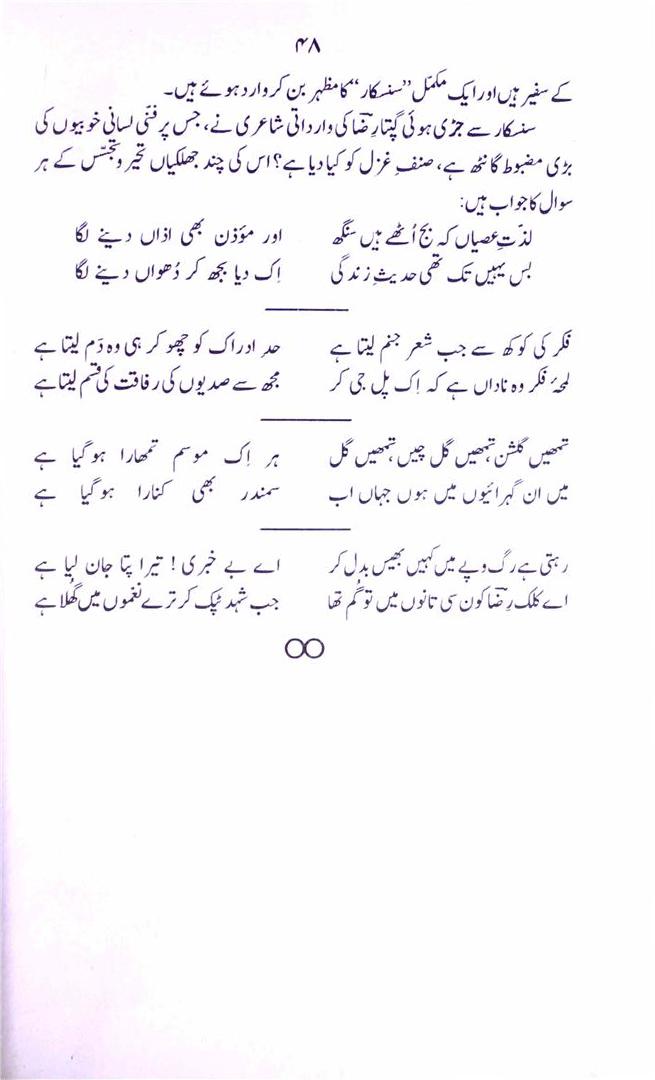 ۴۸
کے سفیر ہیں اور ایک مکمّل ”سنسکار“ کا مظہر بن کر وارد ہوئے ہیں۔
سنسکار سے جڑی ہوئی گپتا رِضا کی وارداتی شاعری نے، جس پر فنّی لسانی خوبیوں کی
بڑی مضبوط گانٹھ ہے، صنفِ غزل کو کیا دیا ہے؟ اس کی چند جھلکیاں تحیّر و تجسّس کے ہر
سوال کا جواب ہیں:
لذّتِ عصیاں کہ بج اُٹھے ہیں سنگھ اور مؤذن بھی اذاں دینے لگا
بس یہیں تک تھی حدیثِ زندگی اِک دیا بجھ کر دُھواں دینے لگا
فکر کی کوکھ سے جب شعر جنم لیتا ہے حدِ ادراک کو چھو کر ہی وہ دَم لیتا ہے
لمحۂ فکر وہ ناداں ہے کہ اِک پل جی کر مجھ سے صدیوں کی رفاقت کی قسم لیتا ہے
تمھیں گلشن، تمھیں گل چیں، تمھیں گل ہر اِک موسم تمھارا ہو گیا ہے
میں ان گہرائیوں میں ہوں جہاں اب سمندر بھی کنارا ہو گیا ہے
رہتی ہے رگ و پے میں کہیں بھیس بدل کر اے بے خبری! تیرا پتا جان لیا ہے
اے کلک رِضا کون سی تانوں میں تو گُم تھا جب شہد ٹپک کر ترے نغموں میں گھُلا ہے